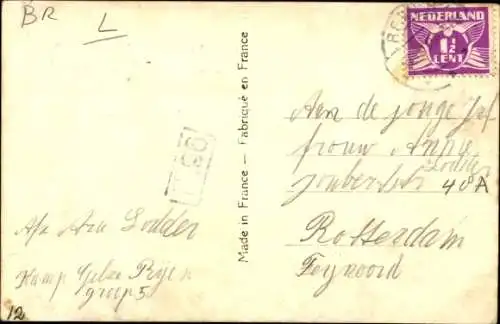 BR
L
NEDERLAND
1½
CENT
Made in France — Fabriqué en France
Aan de jonge Juf
frouw Annie
Lodder
Joubertstr 40A
Rotterdam
Feijnoord
Afz Arie Lodder
Kamp Rijen
groep 5
12